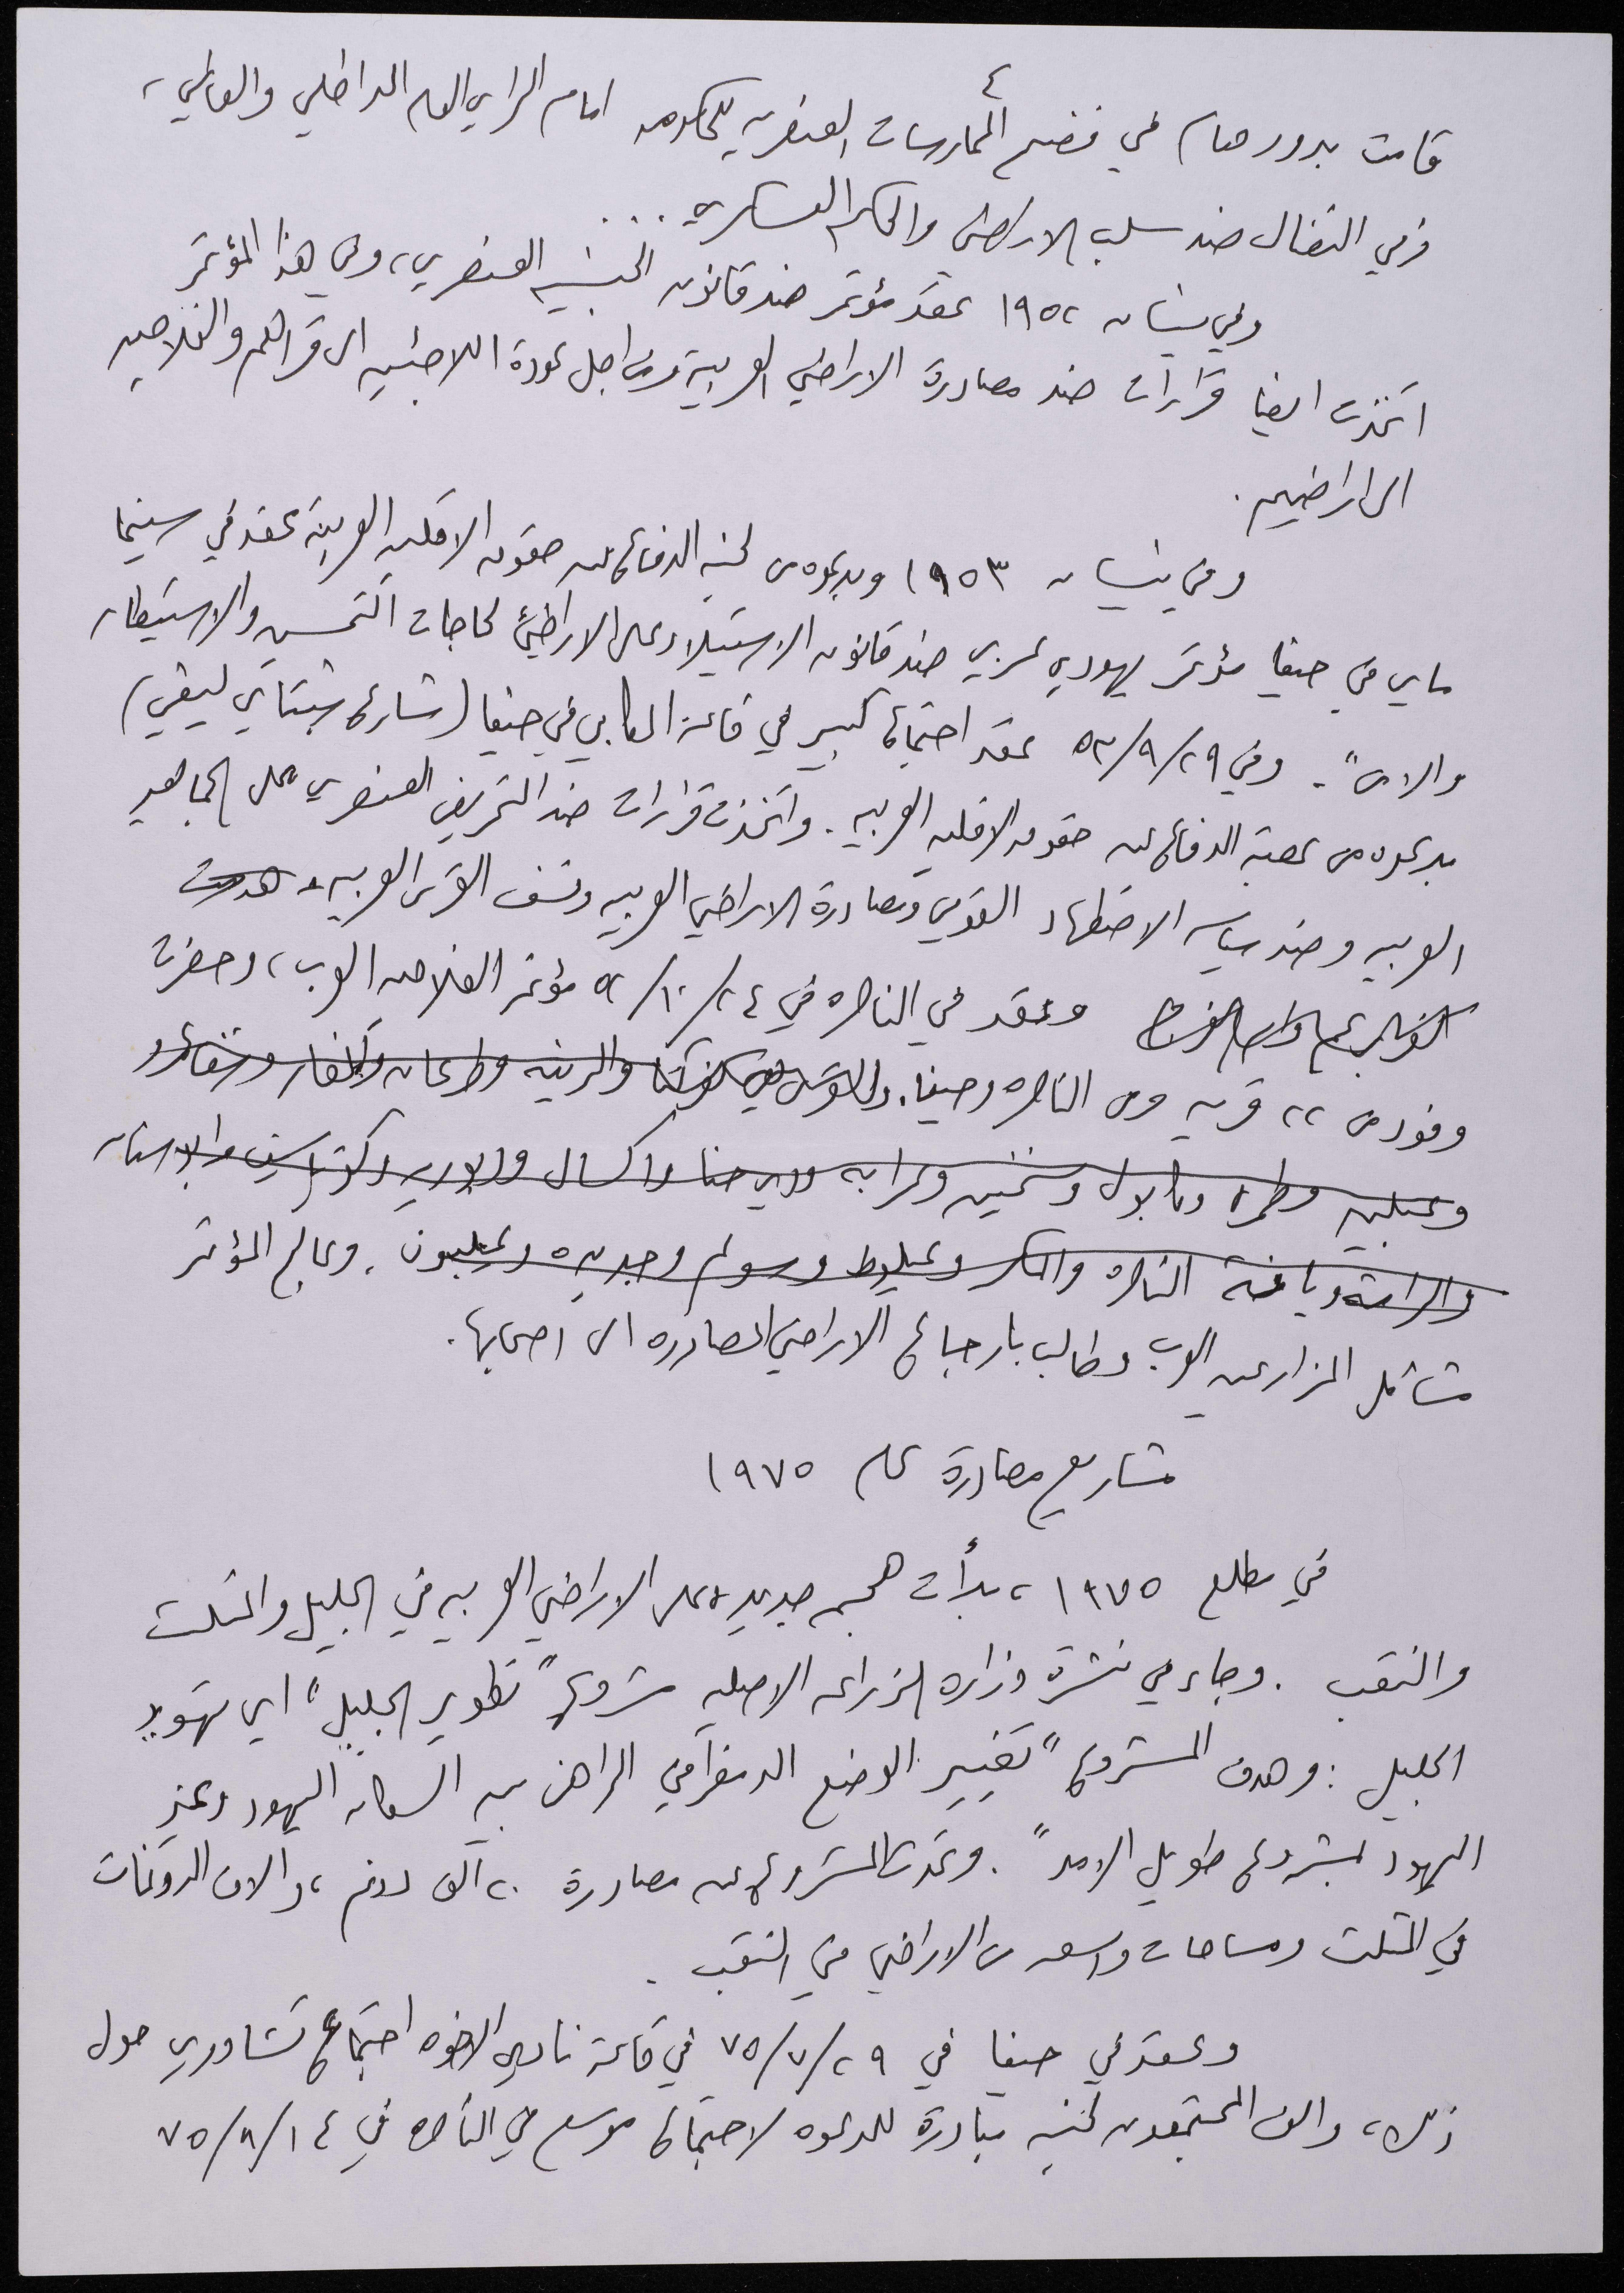 ٤
قامت بدور هام في فضح الممارسات العنصرية للحكومه امام الراي العام الداخلي والعالمي،
وفي النضال ضد سلب الاراضي والحكم العسكري...
وفي نيسان ١٩٥٢ عقد مؤتمر ضد قانون الجنسيه العنصري، وفي هذا المؤتمر
اتخذت ايضا قرارات ضد مصادرة الاراضي العربية ومن اجل عودة اللاجئين الى قراهم والفلاحين
الى اراضيهم.
وفي نيسان ١٩٥٣ وبدعوه من لجنه الدفاع عن حقوق الاقليه العربية عقد في سينما
ماي في حيفا مؤتمر يهودي عربي ضد قانون الاستيلاء على الاراضي "لحاجات التحسين والاستيطان
والامن". وفي ٥٣/٩/٢٩ عقد اجتماع كبير في قاعة المكابي في حيفا (شارع شبتاي ليفي)
بدعوه من عصبة الدفاع عن حقوق الاقليه العربيه. واتخذت قرارات ضد التحريض العنصري على الجماهير
العربيه وضد سياسه الاضطهاد القومي ومصادرة الاراضي العربيه ونسف القرى العربيه
وعقد في الناصره في ٥٢/١٠/٢٤ مؤتمر الفلاحين العرب، وحضرت
وفود من ٢٢ قريه ومن الناصره وحيفا. والرينه وطرعان وشفاعمرو
وعبلين وطمره وكابول وسخنين وعرابه ودير حنا واكسال وكفر ياسيف
والرامة ويافة الناصره والمكر وعيلوط وسولم وجديده وعيلبون. وعالج المؤتمر
مشاكل المزارعين العرب وطالب بارجاع الاراضي المصادره الى اصحابها.
مشاريع مصادرة عام ١٩٧٥
في مطلع ١٩٧٥، بدأت هجمه جديده على الاراضي العربيه في الجليل والمثلث
والنقب. وجاء في نشرة وزاره الزراعه الاصليه مشروع "تطوير الجليل" اي تهويد
الجليل: وهدف المشروع "تغيير الوضع الدمغرافي الراهن بين السكان اليهود وغير
اليهود بمشروع طويل الامد". وتحدث المشروع عن مصادرة ٢٠ الف دونم، والاف الدونمات
في المثلث ومساحات واسعه من الاراضي في النقب.
وعقد في حيفا في ٧٥/٧/٢٩ في قاعة نادي الاخوه اجتماع تشاوري حول
ذلك، والف المجتمعون لجنه مبادرة للدعوه لاجتماع موسع في الناصره في ٧٥/٨/١٤